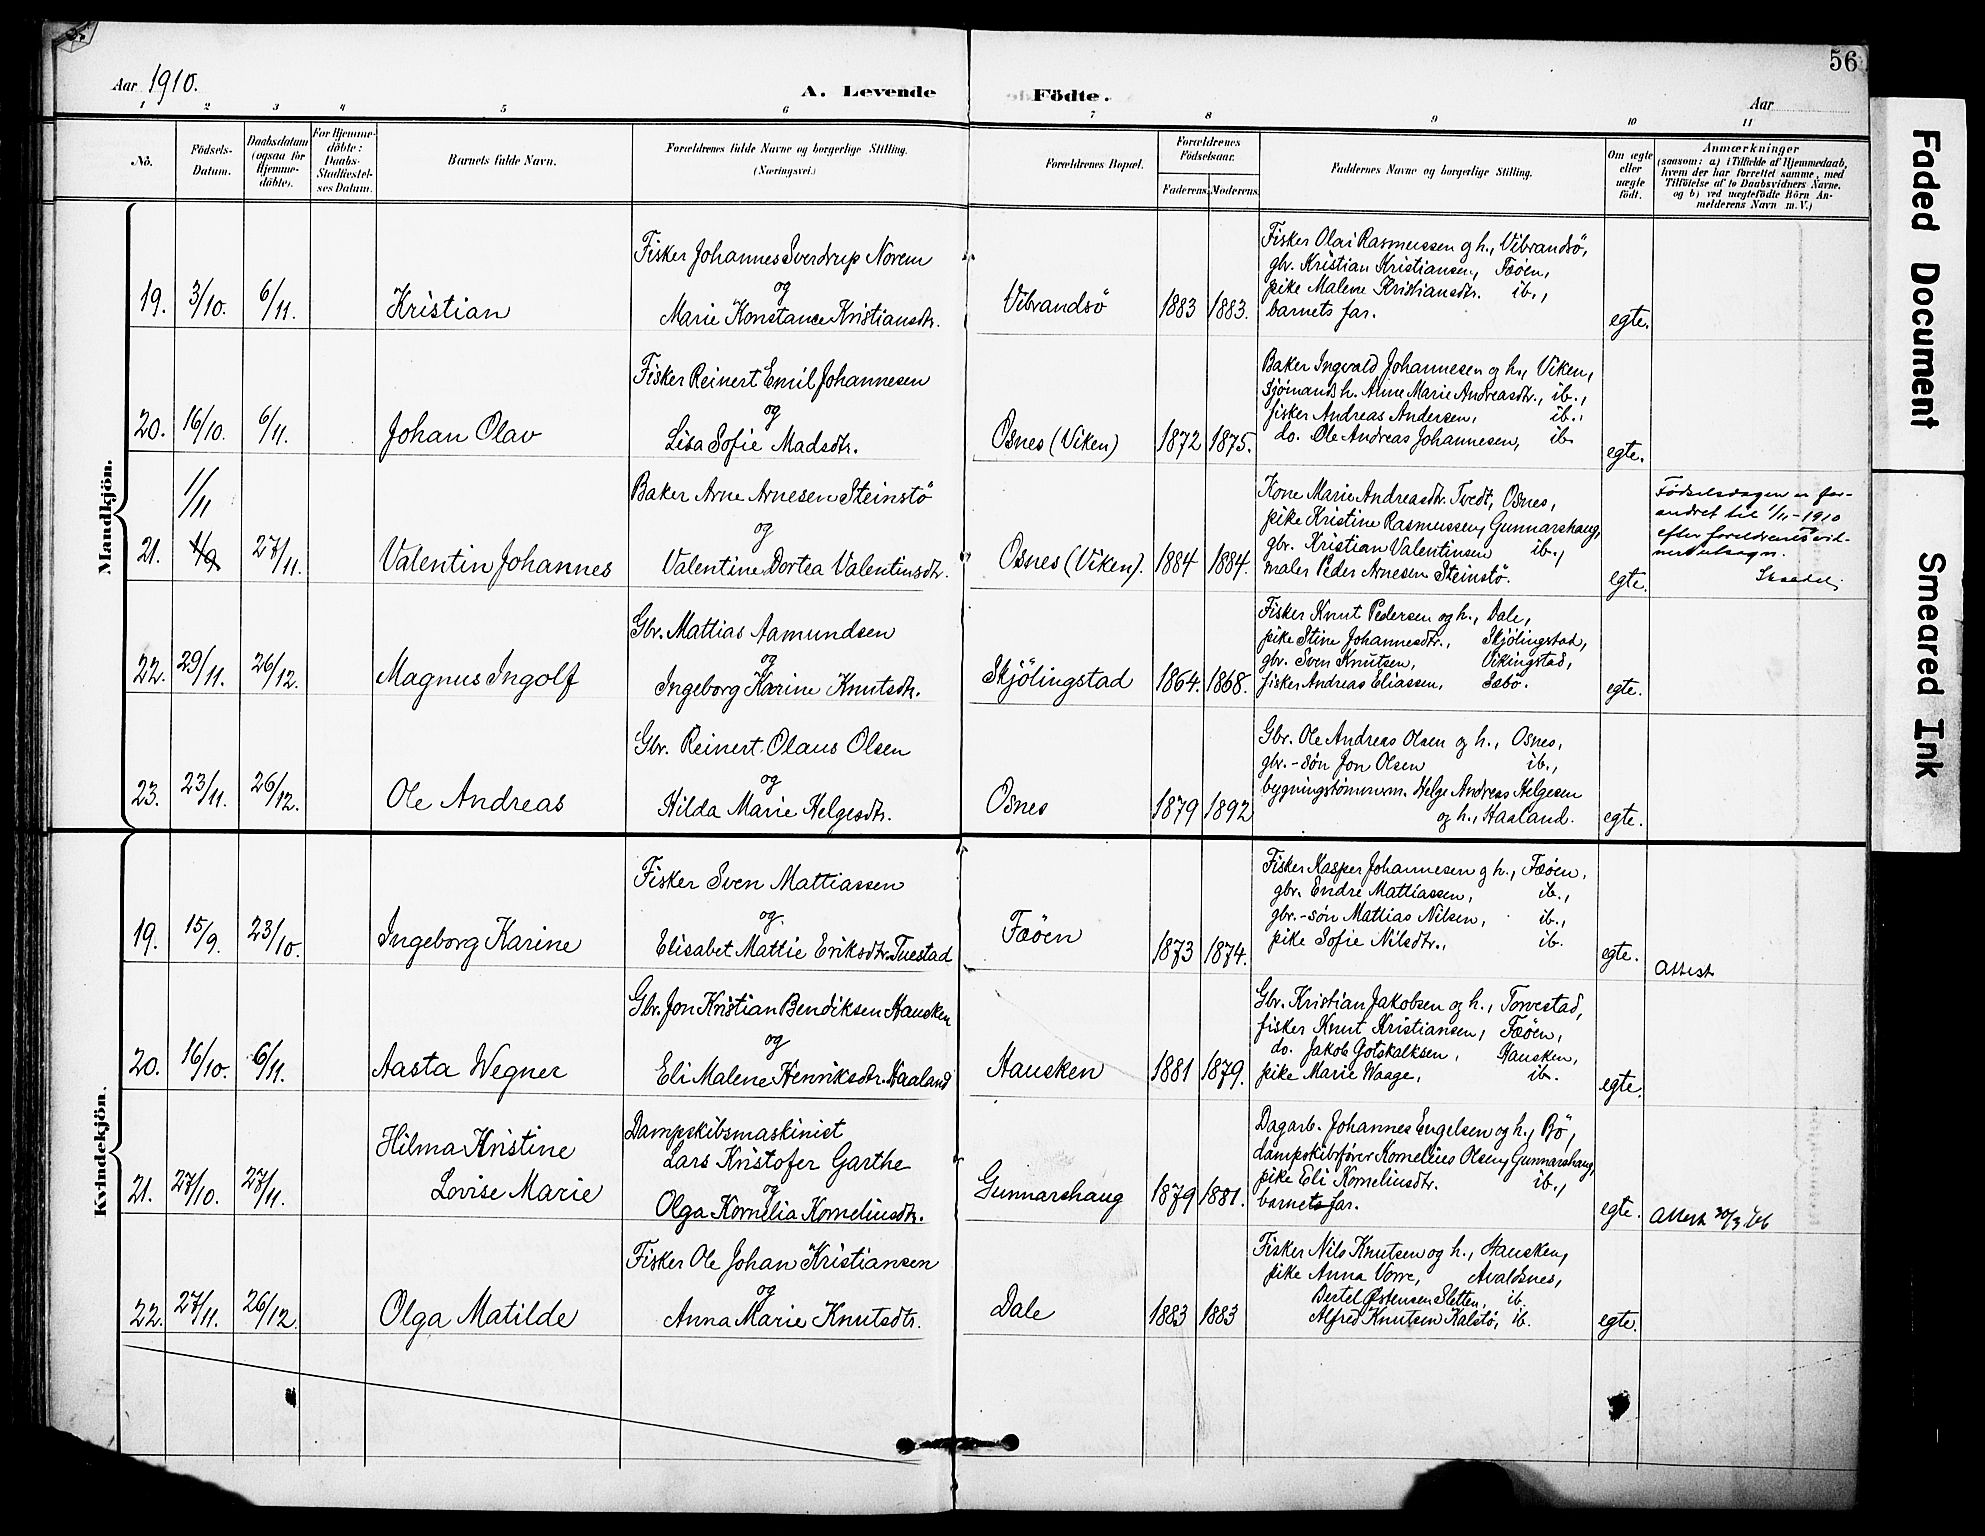 56
Aar 1910.
A. Levende Födte.
Aar
1 2 3 4 5 6 7 8 9 10 11
No.
Födsels-
Datum.
Daabsdatum
(ogsaa for
Hjemme-
döbte).
For Hjemme-
döbte:
Daabs-
Stadfæstel-
ses Datum.
Barnets fulde Navn.
Forældrenes fulde Navne og borgerlige Stilling.
(Næringsvei.)
Forældrenes Bopæl.
Forældrenes
Födselsaar.
Faderens. Moderens.
Faddernes Navne og borgerlige Stilling.
Om ægte
eller
uægte
födt.
Anmærkninger
(saasom: a) i Tilfælde af Hjemmedaab,
hvem der har forrettet samme, med
Tilföielse af to Daabsvidners Navne,
og b) ved uægtefödte Börn An-
melderens Navn m. V.)
Mandkjön.
19. 3/10. 6/11.
Kristian
Fisker Johannes Sverdrup Norem
og
Marie Konstance Kristiansdtr.
Vibrandsö
1883 1883.
Fisker Olai Rasmussen og h., Vibrandsö,
gbr. Kristian Kristiansen, Fæöen,
pike Malene Kristiansdtr. ib.,
barnets far.
egte.
20. 16/10. 6/11.
Johan Olav
Fisker Reinert Emil Johannesen
og
Lisa Sofie Madsdtr.
Osnes (Viken)
1872 1875.
Baker Ingvald Johannesen og h., Viken,
sjömands h. Anne Marie Andreasdtr., ib.,
fisker Andreas Andersen, ib.,
do. Ole Andreas Johannesen, ib.
egte.
1/11
21. 1/9 27/11.
Valentin Johannes
Baker Arne Arnesen Steinstö
og
Valentine Dortea Valentinsdtr.
Osnes (Viken).
1884 1884.
Kone Marie Andreasdtr. Tvedt, Osnes,
pike Kristine Rasmussen, Gunnarshaug,
gbr. Kristian Valentinsen ib.,
maler Peder Arnesen Steinstö.
egte.
Födselsdagen er for-
andret til 1/11-1910
efter foreldrenes vid-
nesutsagn.
22. 29/11. 26/12.
Magnus Ingolf
Gbr. Mattias Aamundsen
og
Ingeborg Karine Knutsdtr.
Skjölingstad
1864. 1868.
Fisker Knut Pedersen og h., Dale,
pike Stine Johannesdtr., Skjölingstad,
gbr. Sven Knutsen, Vikingstad,
fisker Andreas Eliassen, Sæbö.
egte.
23. 23/11. 26/12.
Ole Andreas
Gbr. Reinert Olaus Olsen
og
Hilda Marie Helgesdtr.
Osnes
1879 1892
Gbr. Ole Andreas Olsen og h., Osnes,
gbr.-sön Jon Olsen ib.,
bygningstömmerm. Helge Andreas Helgesen
og h., Haaland.
egte.
Kvindekjön.
19. 15/9. 23/10.
Ingeborg Karine
Fisker Sven Mattiassen
og
Elisabet Mattie Eriksdtr. Tuestad
Fæöen
1873 1874.
Fisker Kasper Johannesen og h., Fæöen,
gbr. Endre Mattiassen, ib.,
gbr.-sön Mattias Nilsen, ib.,
pike Sofie Nilsdtr., ib.
egte.
Attest
20. 16/10. 6/11.
Aasta Wegner
Gbr. Jon Kristian Bendiksen Hausken
og
Eli Malene Henriksdtr. Haaland
Hausken
1881 1879.
Gbr. Kristian Jakobsen og h., Torvestad,
fisker Knut Kristiansen, Fæöen,
do. Jakob Gotskalksen, Hausken,
pike Marie Waage, ib.
egte.
21. 27/10. 27/11.
Hilma Kristine
Lovise Marie
Dampskibsmaskinist
Lars Kristofer Garthe
og
Olga Kornelia Korneliusdtr.
Gunnarshaug
1879 1881.
Dagarb. Johannes Engelsen og h., Bö,
dampskibsförer Kornelius Olsen, Gunnarshaug,
pike Eli Korneliusdtr. ib.,
barnets far.
egte.
Attest 30/3.46
22. 27/11. 26/12.
Olga Matilde
Fisker Ole Johan Kristiansen
og
Anna Marie Knutsdtr.
Dale
1883 1883
Fisker Nils Knutsen og h., Hausken,
pike Anna Vorre, Avaldsnes,
Bertel Østensen Sletten, ib.
Alfred Knutsen Kalstö, ib.
egte.
Faded Document
Smeared Ink